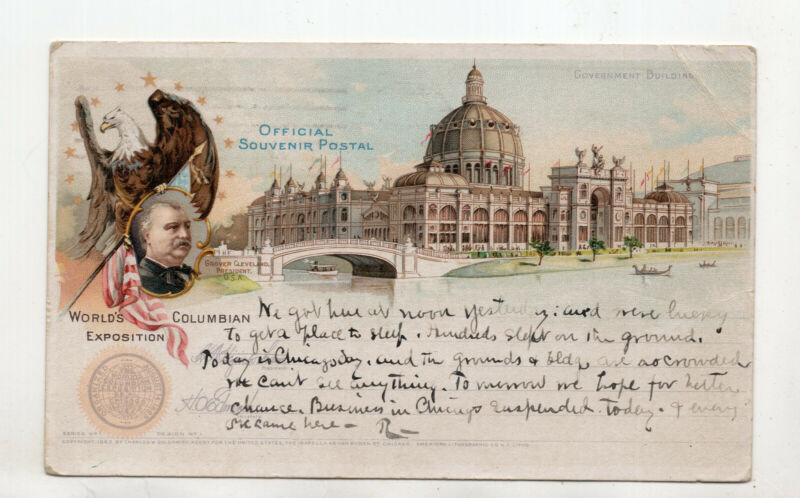 GOVERNMENT BUILDING
OFFICIAL
SOUVENIR POSTAL
GROVER CLEVELAND,
PRESIDENT,
U.S.A.
WORLD'S COLUMBIAN
EXPOSITION
We got here at noon yesterday: and were lucky
to get a place to sleep. Hundreds slept on the ground.
Today is Chicago day, and the grounds & bldgs are so crowded
we can't see anything. To morrow we hope for better
chance. Business in Chicago suspended. today. & every
one came here — R—
PRESIDENT
SERIES No. 1 DESIGN No. 1
COPYRIGHT 1893 BY CHARLES W. GOLDSMITH, AGENT FOR THE UNITED STATES,
AMERICAN LITHOGRAPHIC CO. N.Y. LITHO.